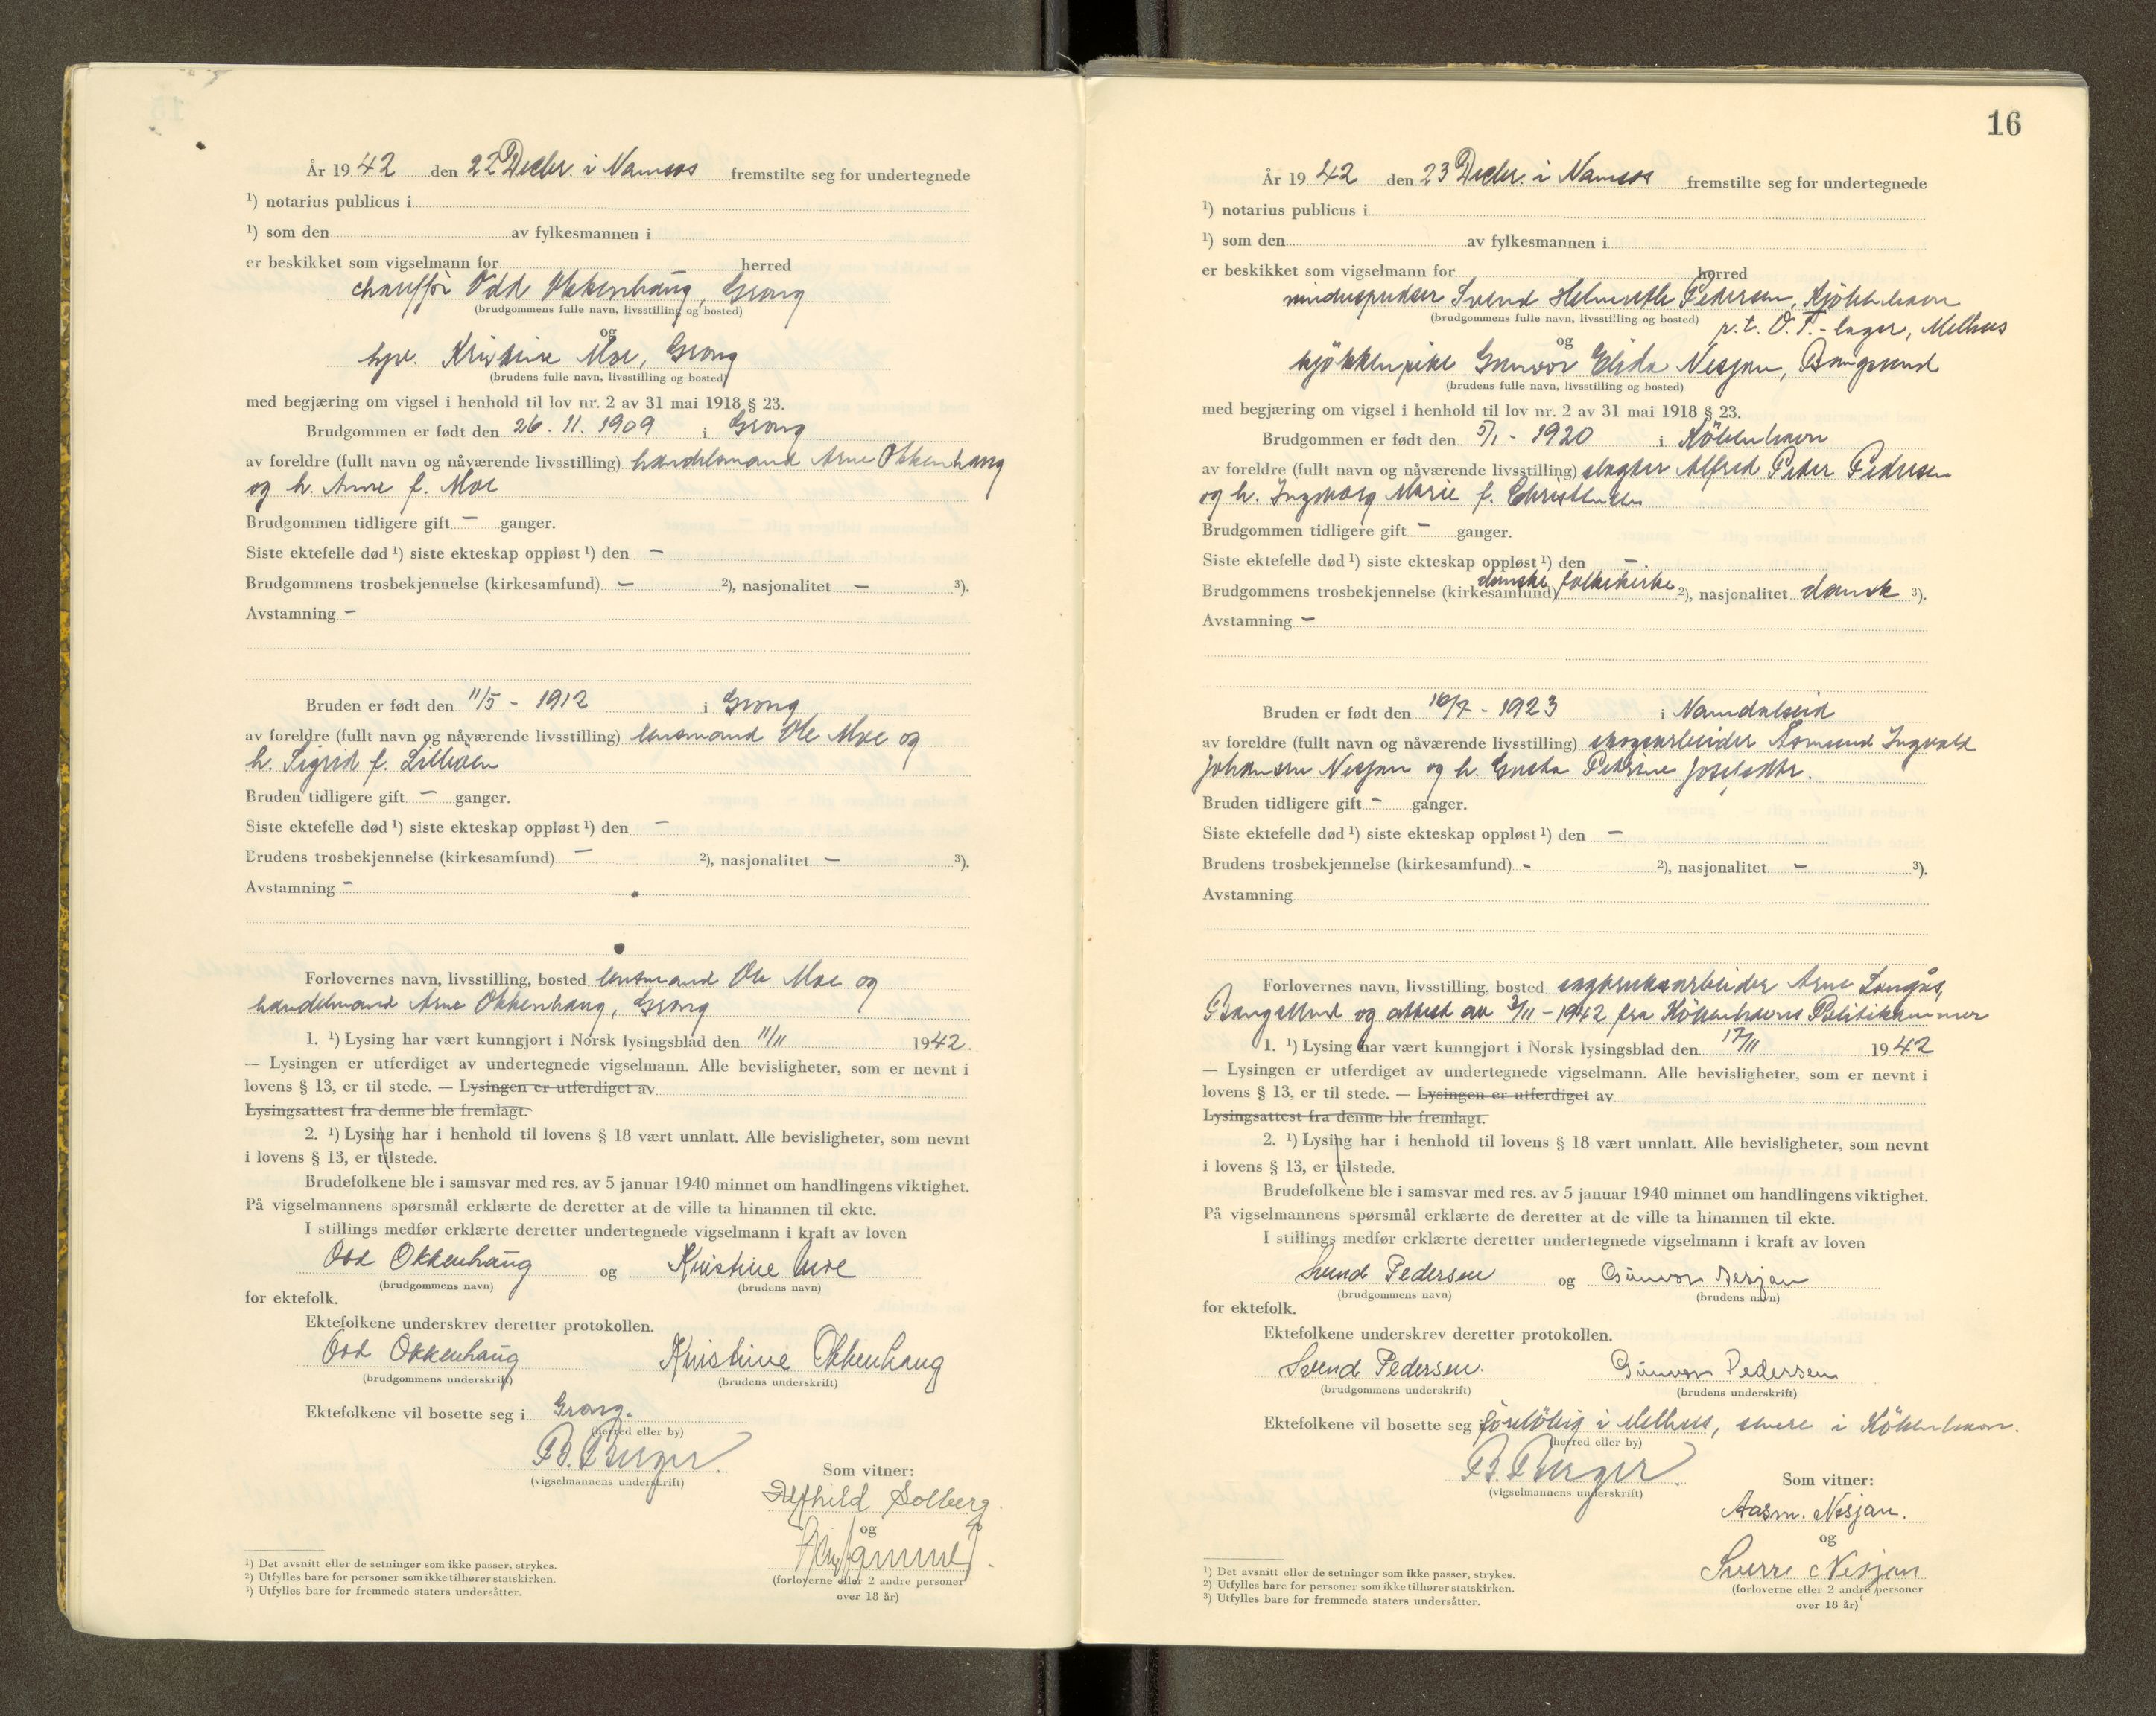 År 1942 den 22 Decbr. i Namsos fremstilte seg for undertegnede
¹) notarius publicus i
¹) som den av fylkesmannen i
er beskikket som vigselmann for herred
chauffør Odd Okkenhaug, Grong
(brudgommens fulle navn, livsstilling og bosted)
og
hpe. Kristine Moe, Grong
(brudens fulle navn, livsstilling og bosted)
med begjæring om vigsel i henhold til lov nr. 2 av 31 mai 1918 § 23.
Brudgommen er født den 26. 11. 1909 i Grong
av foreldre (fullt navn og nåværende livsstilling) handelsmand Arne Okkenhaug
og h. Anne f. Moe
Brudgommen tidligere gift - ganger.
Siste ektefelle død ¹) siste ekteskap oppløst ¹) den -
Brudgommens trosbekjennelse (kirkesamfund) - ²), nasjonalitet - ³).
Avstamning -
Bruden er født den 11/5 - 1912 i Grong
av foreldre (fullt navn og nåværende livsstilling) lensmand Ole Moe og
h. Sigrid f. Lilleöen
Bruden tidligere gift - ganger.
Siste ektefelle død ¹) siste ekteskap oppløst ¹) den -
Brudens trosbekjennelse (kirkesamfund) - ²), nasjonalitet - ³).
Avstamning -
Forlovernes navn, livsstilling, bosted lensmand Ole Moe og
handelsmand Arne Okkenhaug, Grong
1. ¹) Lysing har vært kunngjort i Norsk lysingsblad den 11/11 1942.
— Lysingen er utferdiget av undertegnede vigselmann. Alle bevisligheter, som er nevnt i
lovens § 13, er til stede. — Lysingen er utferdiget av
Lysingsattest fra denne ble fremlagt.
2. ¹) Lysing har i henhold til lovens § 18 vært unnlatt. Alle bevisligheter, som nevnt
i lovens § 13, er tilstede.
Brudefolkene ble i samsvar med res. av 5 januar 1940 minnet om handlingens viktighet.
På vigselmannens spørsmål erklærte de deretter at de ville ta hinannen til ekte.
I stillings medfør erklærte deretter undertegnede vigselmann i kraft av loven
Odd Okkenhaug og Kristine Moe
(brudgommens navn) (brudens navn)
for ektefolk.
Ektefolkene underskrev deretter protokollen.
Odd Okkenhaug Kristine Okkenhaug
(brudgommens underskrift) (brudens underskrift)
Ektefolkene vil bosette seg i Grong.
(herred eller by)
B. Burger
(vigselmannens underskrift)
Som vitner:
Alfhild Solberg.
og
(forloverne eller 2 andre personer
over 18 år)
¹) Det avsnitt eller de setninger som ikke passer, strykes.
²) Utfylles bare for personer som ikke tilhører statskirken.
³) Utfylles bare for fremmede staters undersåtter.
16
År 1942 den 23 Decbr. i Namsos fremstilte seg for undertegnede
¹) notarius publicus i
¹) som den av fylkesmannen i
er beskikket som vigselmann for herred
vinduspudser Svend Helmuth Pedersen, Kjöbenhavn
(brudgommens fulle navn, livsstilling og bosted) p.t. O.T.-lager, Melhus
og
kjökkenpike Gunvor Elida Nesjan, Bangsund
(brudens fulle navn, livsstilling og bosted)
med begjæring om vigsel i henhold til lov nr. 2 av 31 mai 1918 § 23.
Brudgommen er født den 5/1 - 1920 i Köbenhavn
av foreldre (fullt navn og nåværende livsstilling) slagter Alfred Peter Pedersen
og h. Ingeborg Marie f. Christensen
Brudgommen tidligere gift - ganger.
Siste ektefelle død ¹) siste ekteskap oppløst ¹) den -.
Brudgommens trosbekjennelse (kirkesamfund) danske folkekirke ²), nasjonalitet dansk ³).
Avstamning -
Bruden er født den 16/7 - 1923 i Namdalseid
av foreldre (fullt navn og nåværende livsstilling) skogsarbeider Asmund Ingvald
Johansen Nesjan og h. Gusta Petrine Josefsdtr.
Bruden tidligere gift - ganger.
Siste ektefelle død ¹) siste ekteskap oppløst ¹) den -
Brudens trosbekjennelse (kirkesamfund) - ²), nasjonalitet - ³).
Avstamning
Forlovernes navn, livsstilling, bosted sagbruksarbeider Arne Langås,
Bangsund og attest av 3/11 - 1942 fra Köbenhavns Politikammer
1. ¹) Lysing har vært kunngjort i Norsk lysingsblad den 17/11 1942
— Lysingen er utferdiget av undertegnede vigselmann. Alle bevisligheter, som er nevnt i
lovens § 13, er til stede. — Lysingen er utferdiget av
Lysingsattest fra denne ble fremlagt.
2. ¹) Lysing har i henhold til lovens § 18 vært unnlatt. Alle bevisligheter, som nevnt
i lovens § 13, er tilstede.
Brudefolkene ble i samsvar med res. av 5 januar 1940 minnet om handlingens viktighet.
På vigselmannens spørsmål erklærte de deretter at de ville ta hinannen til ekte.
I stillings medfør erklærte deretter undertegnede vigselmann i kraft av loven
Svend Pedersen og Gunvor Nesjan
(brudgommens navn) (brudens navn)
for ektefolk.
Ektefolkene underskrev deretter protokollen.
Svend Pedersen. Gunvor Pedersen
(brudgommens underskrift) (brudens underskrift)
Ektefolkene vil bosette seg foreløbig i Melhus, senere i Köbenhavn.
(herred eller by)
B. Burger
(vigselmannens underskrift)
Som vitner:
Aasm. Nesjan.
og
Sverre Nesjan
(forloverne eller 2 andre personer
over 18 år)
¹) Det avsnitt eller de setninger som ikke passer, strykes.
²) Utfylles bare for personer som ikke tilhører statskirken.
³) Utfylles bare for fremmede staters undersåtter.